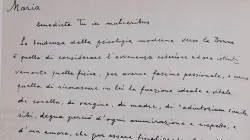 Maria
Benedicta Tu in mulieribus
La tendenza della psicologia moderna verso la Donna
è quella di considerare l'avvenenza esteriore e doti
veramente quelle fisiche, per avere fascino passionale, e meno
quella di riconoscere in lei la funzione ideale e vitale
di sorella, di vergine, di madre, di "adiutorium simile
degna perciò d'ogni ammirazione e rispetto,
d'un amore, che per essere